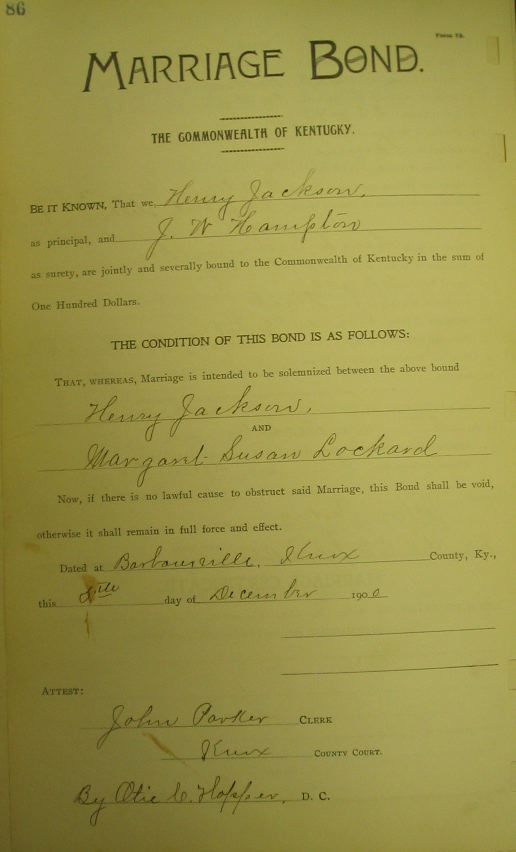 86
Form 73.
MARRIAGE BOND.
THE COMMONWEALTH OF KENTUCKY.
BE IT KNOWN, That we, Henry Jackson,
as principal, and J. W Hampton
as surety, are jointly and severally bound to the Commonwealth of Kentucky in the sum of
One Hundred Dollars.
THE CONDITION OF THIS BOND IS AS FOLLOWS:
THAT, WHEREAS, Marriage is intended to be solemnized between the above bound
Henry Jackson,
AND
Margaret Susan Lockard
Now, if there is no lawful cause to obstruct said Marriage, this Bond shall be void,
otherwise it shall remain in full force and effect.
Dated at Barbourville, Knox County, Ky.,
this 8th day of December 1900
ATTEST:
John Parker CLERK
Knox COUNTY COURT.
By Otic C. Hopper, D. C.